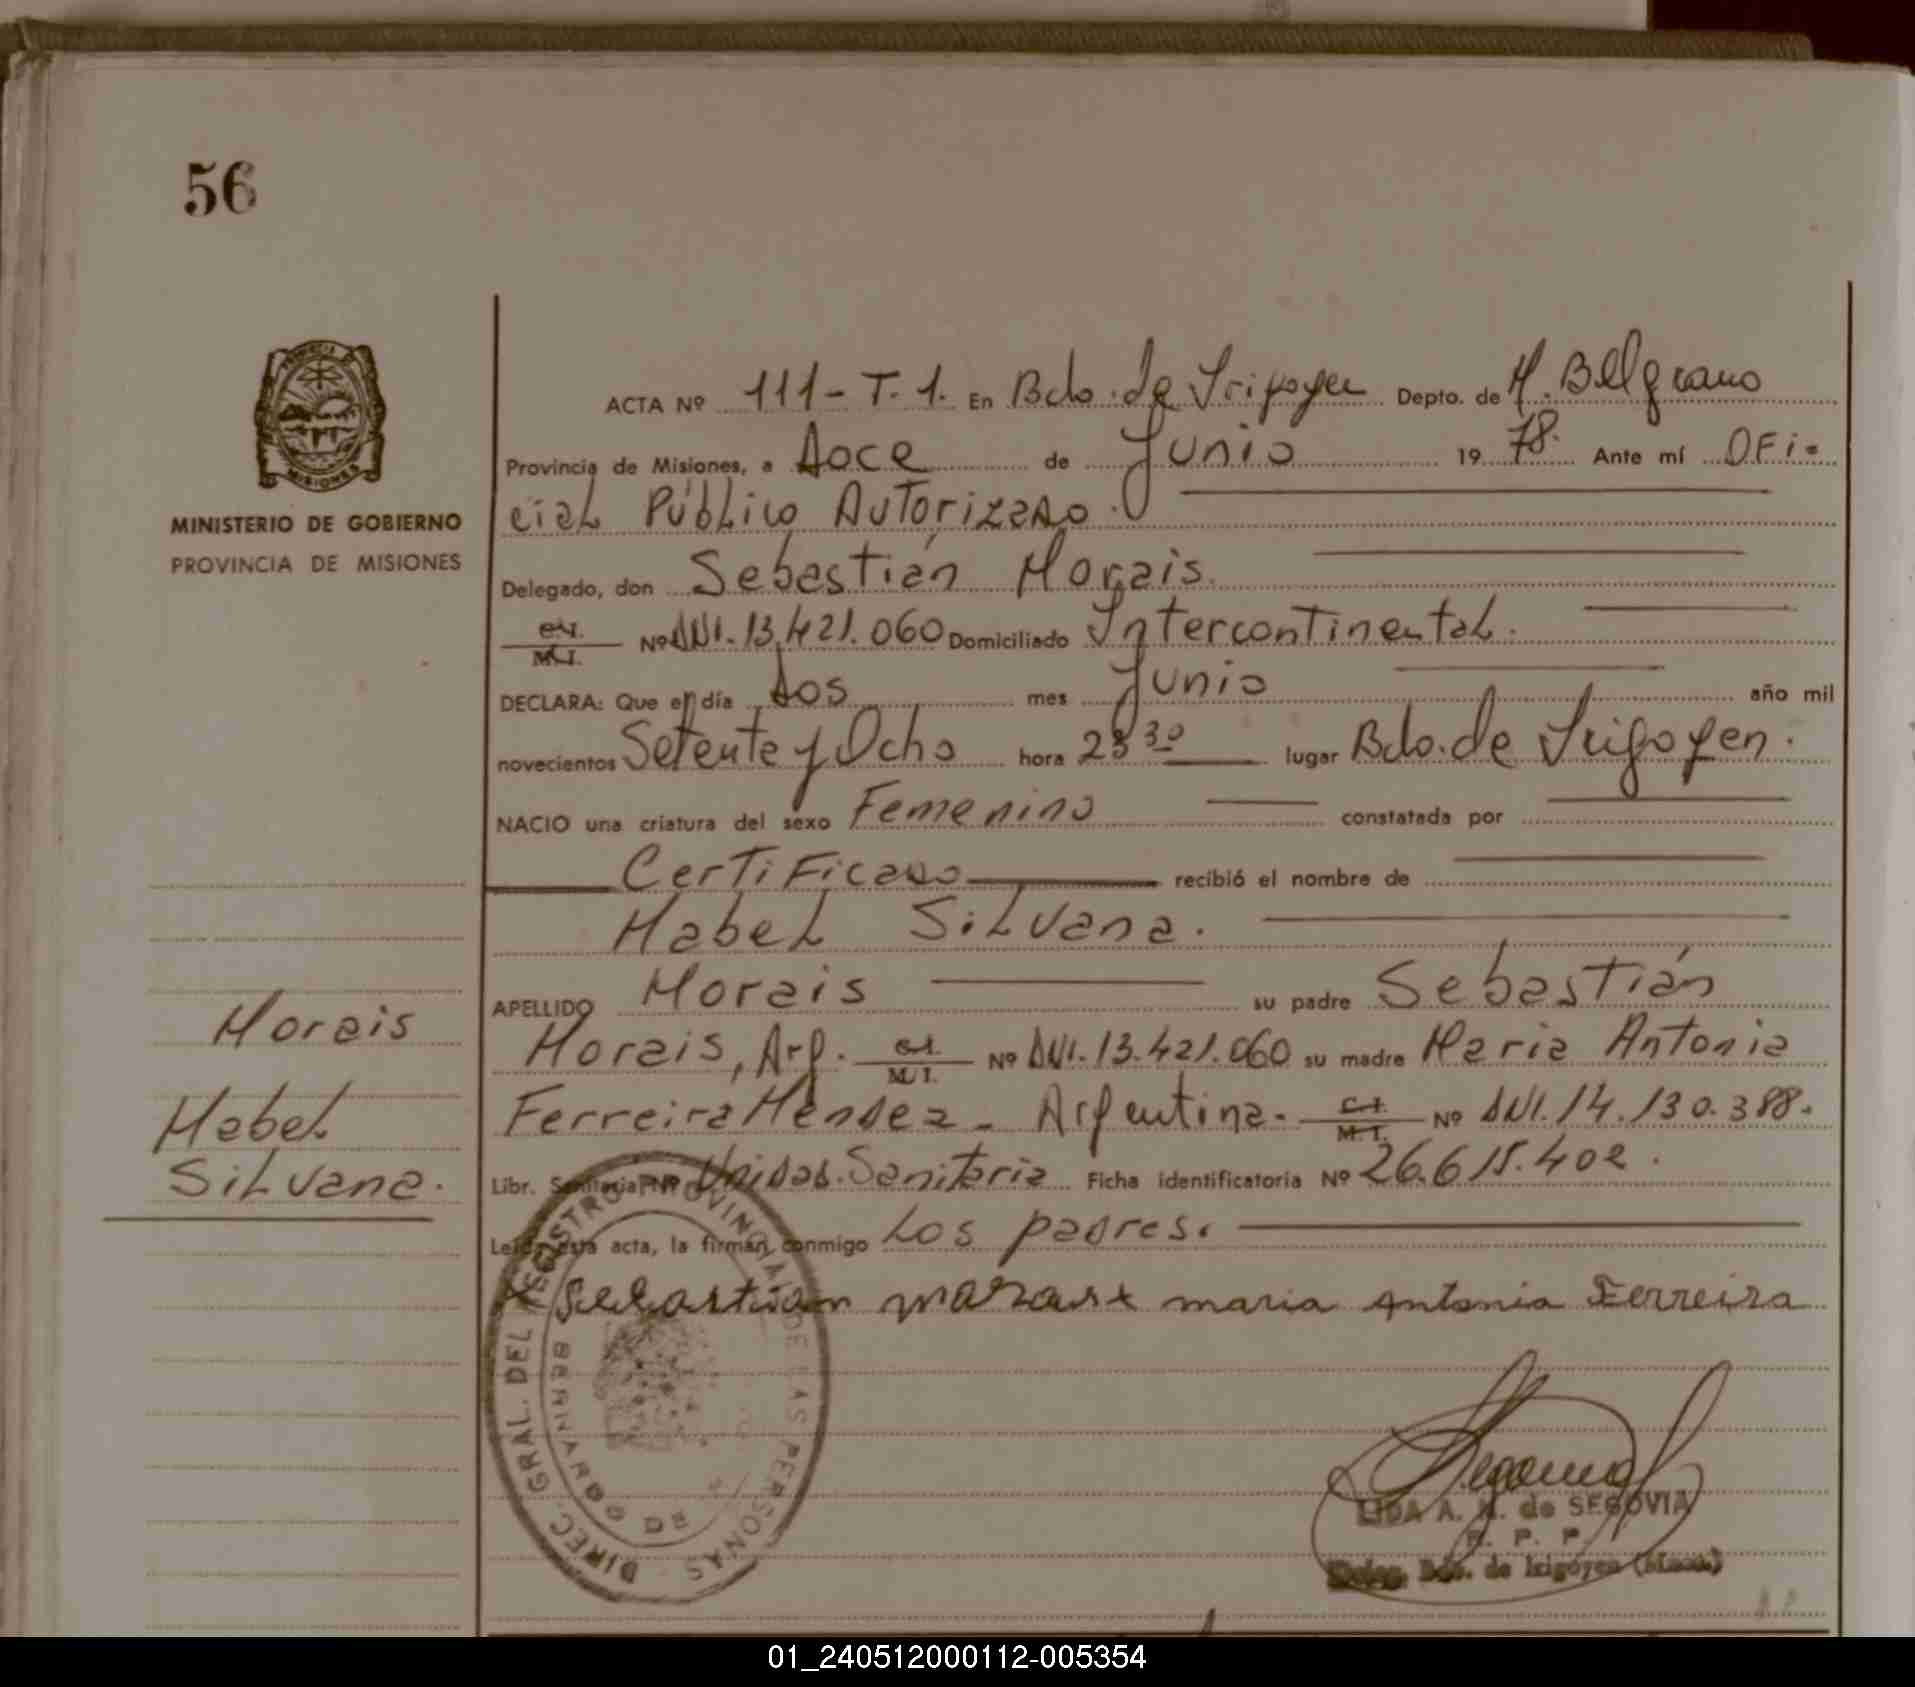 56
PROVINCIA DE
MISIONES
MINISTERIO DE GOBIERNO
PROVINCIA DE MISIONES
Morais
Mabel
Silvana.
ACTA Nº 111-T.1. En Bdo. de Irigoyen Depto. de M. Belgrano
Provincia de Misiones, a doce de Junio 19 78. Ante mí OFi-
cial Público Autorizado.
Delegado, don Sebastián Morais.
C.I. M.I. Nº DNI. 13.421.060 Domiciliado Intercontinental.
DECLARA: Que el día dos mes Junio año mil
novecientos Setenta y Ocho hora 23 30 lugar Bdo. de Irigoyen.
NACIO una criatura del sexo Femenino constatada por
Certificado recibió el nombre de
Mabel Silvana.
APELLIDO Morais su padre Sebastián
Morais, Arg. C.I. M.I. Nº DNI. 13.421.060 su madre Maria Antonia
Ferreira Mendez - Argentina. C.I. M.I. Nº DNI. 14.130.388.
Libr. Sanitaria Nº Unidad. Sanitaria Ficha identificatoria Nº 26.615.402.
Leída esta acta, la firman conmigo Los padres.
x Sebastian marais x maria Antonia Ferreira
DIREC. GRAL. DEL REGISTRO PROVINCIAL DE LAS PERSONAS
BERNARDO DE
LIDA A. N. de SEGOVIA
R. P. P.
Deleg. Bdo. de Irigoyen (Mnes.)
01_240512000112-005354